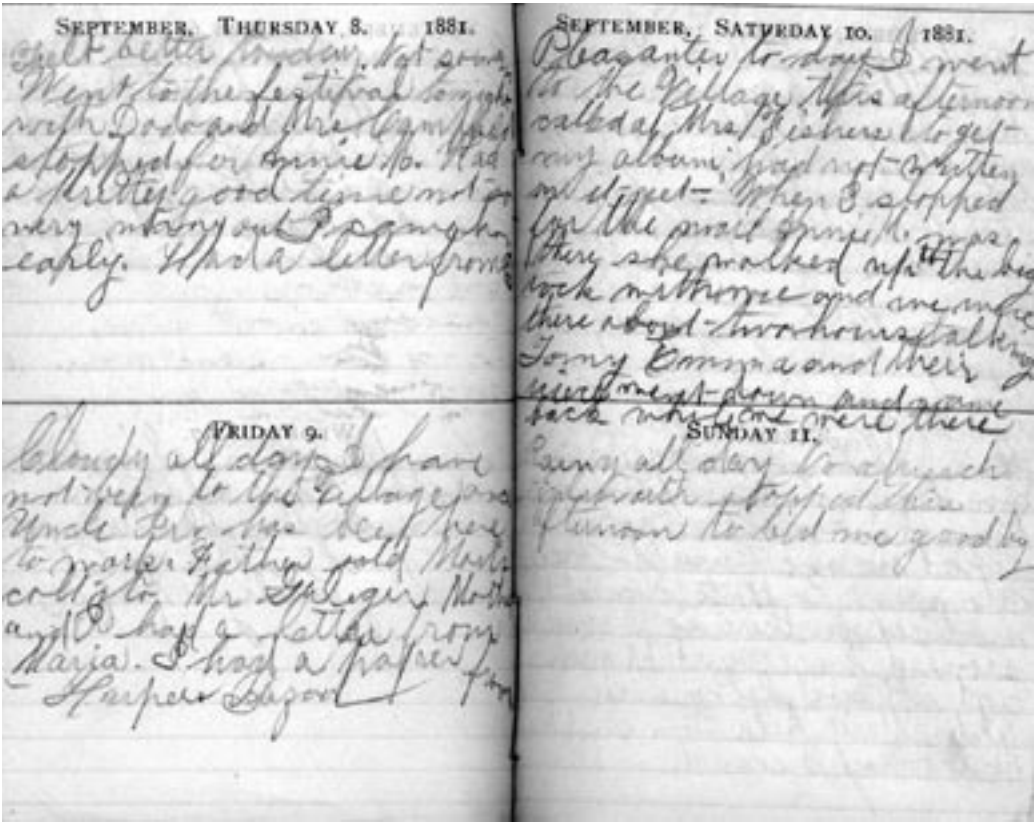 SEPTEMBER, THURSDAY 8. 1881.
Felt better to day. Not so
Went to the festival
with Dodo and Mrs
stopped for Annie Mc. Had
a pretty good time not so
very many out I came home
early. Had a letter from
FRIDAY 9.
Cloudy all day. I have
not been to the Village
Uncle has been here
to work. Father sold
colts to Mr Mother
and I had a letter from
Maria. I had a paper from
Harper Bazar
SEPTEMBER, SATURDAY 10. 1881.
Pleasanter to day. I went
to the Village this afternoon
called at Mrs Fishers to get
my album, had not written
in it yet. When I stopped
for the mail Annie Mc. was
there she walked up to the big
rock with me and we were
there about two hours talking
Tomy Emma and their
went down and came
back while we were there
SUNDAY 11.
Rainy all day
stopped this
afternoon to bid me good by